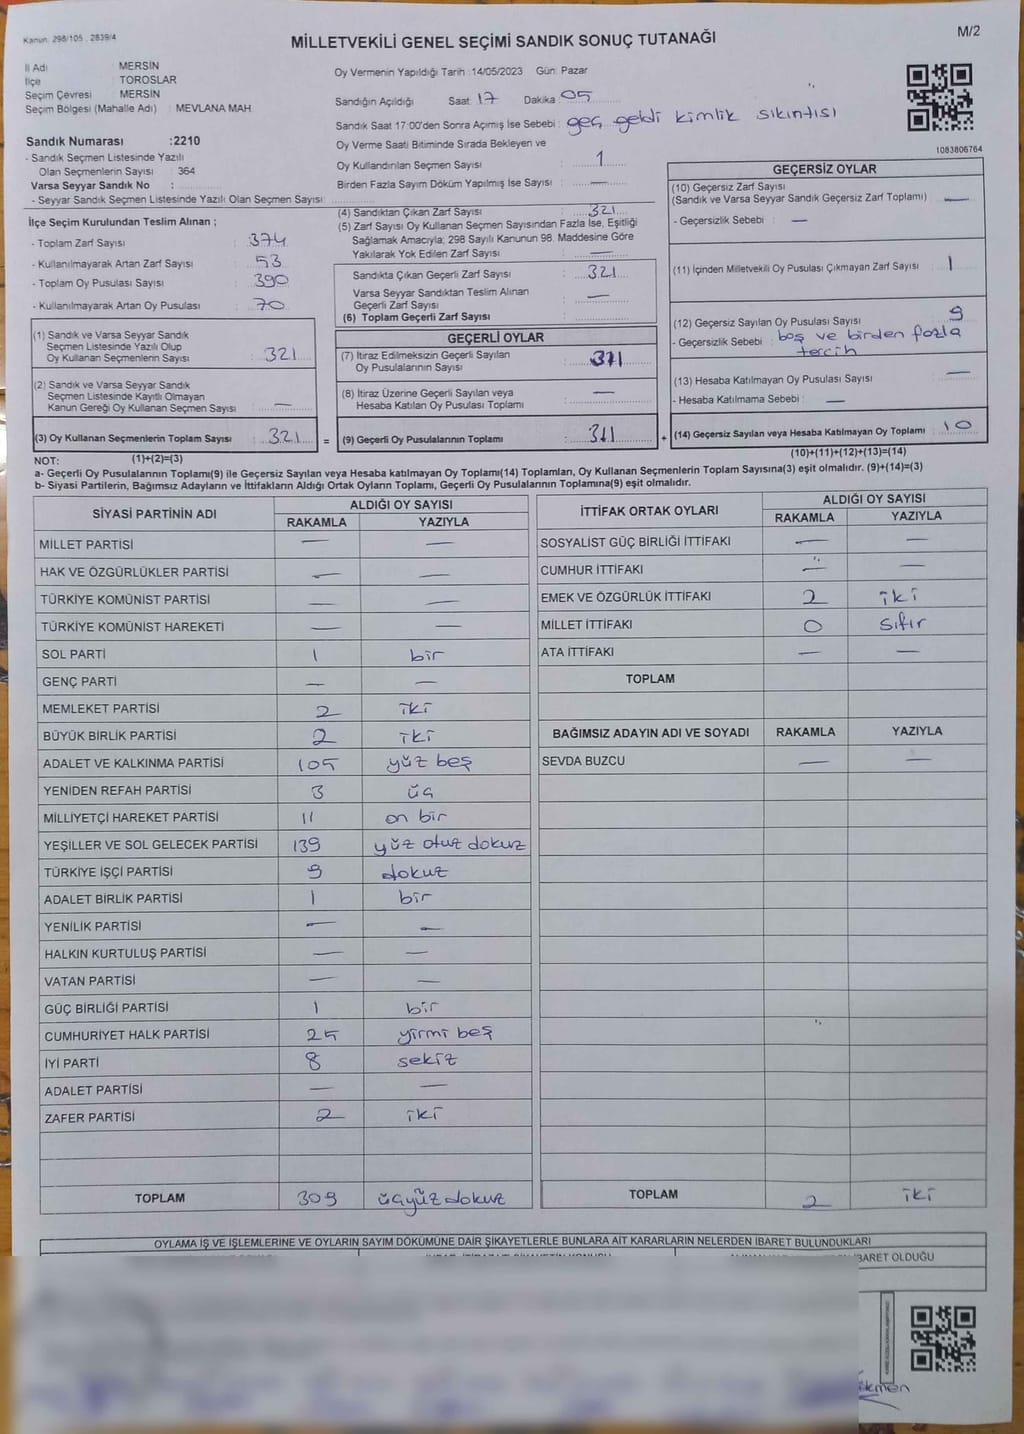 Kanun: 298/105 , 2839/4
M/2
MİLLETVEKİLİ GENEL SEÇİMİ SANDIK SONUÇ TUTANAĞI
İl Adı : MERSİN
İlçe : TOROSLAR
Seçim Çevresi : MERSİN
Seçim Bölgesi (Mahalle Adı) : MEVLANA MAH.
Sandık Numarası :2210
- Sandık Seçmen Listesinde Yazılı
Olan Seçmenlerin Sayısı : 364
Varsa Seyyar Sandık No :
- Seyyar Sandık Seçmen Listesinde Yazılı Olan Seçmen Sayısı :
İlçe Seçim Kurulundan Teslim Alınan ;
- Toplam Zarf Sayısı : 374
- Kullanılmayarak Artan Zarf Sayısı : 53
- Toplam Oy Pusulası Sayısı : 390
- Kullanılmayarak Artan Oy Pusulası : 70
(1) Sandık ve Varsa Seyyar Sandık
Seçmen Listesinde Yazılı Olup
Oy Kullanan Seçmenlerin Sayısı : 321
(2) Sandık ve Varsa Seyyar Sandık
Seçmen Listesinde Kayıtlı Olmayan
Kanun Gereği Oy Kullanan Seçmen Sayısı : —
(3) Oy Kullanan Seçmenlerin Toplam Sayısı : 321 =
Oy Vermenin Yapıldığı Tarih :14/05/2023 Gün: Pazar
Sandığın Açıldığı Saat: 17 Dakika: 05
Sandık Saat 17:00'den Sonra Açımış İse Sebebi : geç geldi kimlik sıkıntısı
Oy Verme Saati Bitiminde Sırada Bekleyen ve
Oy Kullandırılan Seçmen Sayısı : 1
Birden Fazla Sayım Döküm Yapılmış İse Sayısı : —
(4) Sandıktan Çıkan Zarf Sayısı : 321
(5) Zarf Sayısı Oy Kullanan Seçmen Sayısından Fazla İse, Eşitliği
Sağlamak Amacıyla; 298 Sayılı Kanunun 98. Maddesine Göre
Yakılarak Yok Edilen Zarf Sayısı : —
Sandıkta Çıkan Geçerli Zarf Sayısı : 321
Varsa Seyyar Sandıktan Teslim Alınan
Geçerli Zarf Sayısı : —
(6) Toplam Geçerli Zarf Sayısı :
GEÇERLİ OYLAR
(7) İtiraz Edilmeksizin Geçerli Sayılan
Oy Pusulalarının Sayısı : 311
(8) İtiraz Üzerine Geçerli Sayılan veya
Hesaba Katılan Oy Pusulası Toplamı : —
(9) Geçerli Oy Pusulalarının Toplamı : 311 +
1083806764
GEÇERSİZ OYLAR
(10) Geçersiz Zarf Sayısı
(Sandık ve Varsa Seyyar Sandık Geçersiz Zarf Toplamı) : —
- Geçersizlik Sebebi : —
(11) İçinden Milletvekili Oy Pusulası Çıkmayan Zarf Sayısı : 1
(12) Geçersiz Sayılan Oy Pusulası Sayısı : 9
- Geçersizlik Sebebi : boş ve birden fazla
tercih
(13) Hesaba Katılmayan Oy Pusulası Sayısı : —
- Hesaba Katılmama Sebebi : —
(14) Geçersiz Sayılan veya Hesaba Katılmayan Oy Toplamı : 10
NOT: (1)+(2)=(3) (10)+(11)+(12)+(13)=(14)
a- Geçerli Oy Pusulalarının Toplamı(9) ile Geçersiz Sayılan veya Hesaba Katılmayan Oy Toplamı(14) Toplamları, Oy Kullanan Seçmenlerin Toplam Sayısına(3) eşit olmalıdır. (9)+(14)=(3)
b- Siyasi Partilerin, Bağımsız Adayların ve İttifakların Aldığı Ortak Oyların Toplamı, Geçerli Oy Pusulalarının Toplamına(9) eşit olmalıdır.
SİYASİ PARTİNİN ADI ALDIĞI OY SAYISI
RAKAMLA YAZIYLA
MİLLET PARTİSİ — —
HAK VE ÖZGÜRLÜKLER PARTİSİ — —
TÜRKİYE KOMÜNİST PARTİSİ — —
TÜRKİYE KOMÜNİST HAREKETİ — —
SOL PARTİ 1 bir
GENÇ PARTİ — —
MEMLEKET PARTİSİ 2 iki
BÜYÜK BİRLİK PARTİSİ 2 iki
ADALET VE KALKINMA PARTİSİ 105 yüz beş
YENİDEN REFAH PARTİSİ 3 üç
MİLLİYETÇİ HAREKET PARTİSİ 11 on bir
YEŞİLLER VE SOL GELECEK PARTİSİ 139 yüz otuz dokuz
TÜRKİYE İŞÇİ PARTİSİ 9 dokuz
ADALET BİRLİK PARTİSİ 1 bir
YENİLİK PARTİSİ — —
HALKIN KURTULUŞ PARTİSİ — —
VATAN PARTİSİ — —
GÜÇ BİRLİĞİ PARTİSİ 1 bir
CUMHURİYET HALK PARTİSİ 25 yirmi beş
İYİ PARTİ 8 sekiz
ADALET PARTİSİ — —
ZAFER PARTİSİ 2 iki
TOPLAM 309 üçyüz dokuz
İTTİFAK ORTAK OYLARI ALDIĞI OY SAYISI
RAKAMLA YAZIYLA
SOSYALİST GÜÇ BİRLİĞİ İTTİFAKI — —
CUMHUR İTTİFAKI — —
EMEK VE ÖZGÜRLÜK İTTİFAKI 2 iki
MİLLET İTTİFAKI 0 sıfır
ATA İTTİFAKI — —
TOPLAM
BAĞIMSIZ ADAYIN ADI VE SOYADI RAKAMLA YAZIYLA
SEVDA BUZCU — —
TOPLAM 2 iki
OYLAMA İŞ VE İŞLEMLERİNE VE OYLARIN SAYIM DÖKÜMÜNE DAİR ŞİKAYETLERLE BUNLARA AİT KARARLARIN NELERDEN İBARET BULUNDUKLARI
İBARET OLDUĞU